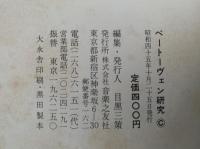 ベートーヴェン研究 ©
昭和四十五年十月二十五日発行
定価四〇〇円
編集・発行人 目黒三策
発行所 株式会社 音楽之友社
東京都新宿区神楽坂6-30
郵便番号一六二
電話(二六八)六一五一(代)
営業部電話(二〇三)四一九一
振替 東京一九六二五〇
大永舎印刷・黒田製本